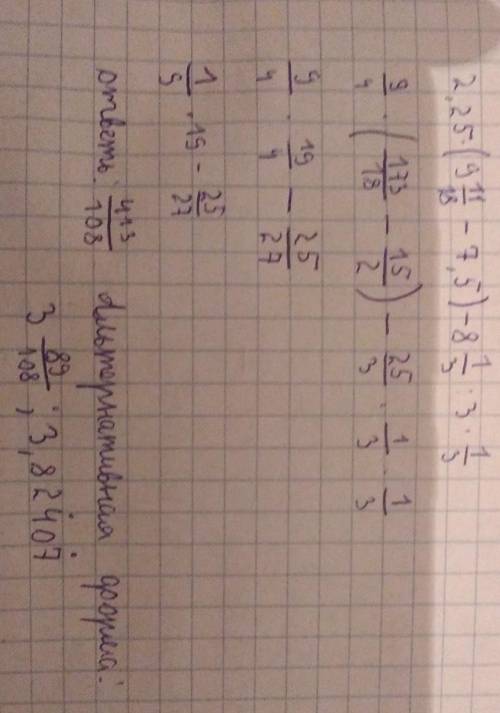 2,25·(9 11/18 - 7,5) - 8 1/3 : 3 · 1/3
9/4 · (173/18 - 15/2) - 25/3 · 1/3 · 1/3
9/4 · 19/9 - 25/27
1/4 · 19 - 25/27
ответь: 413/108 альтернативная форма:
3 89/108 ; 3,82407